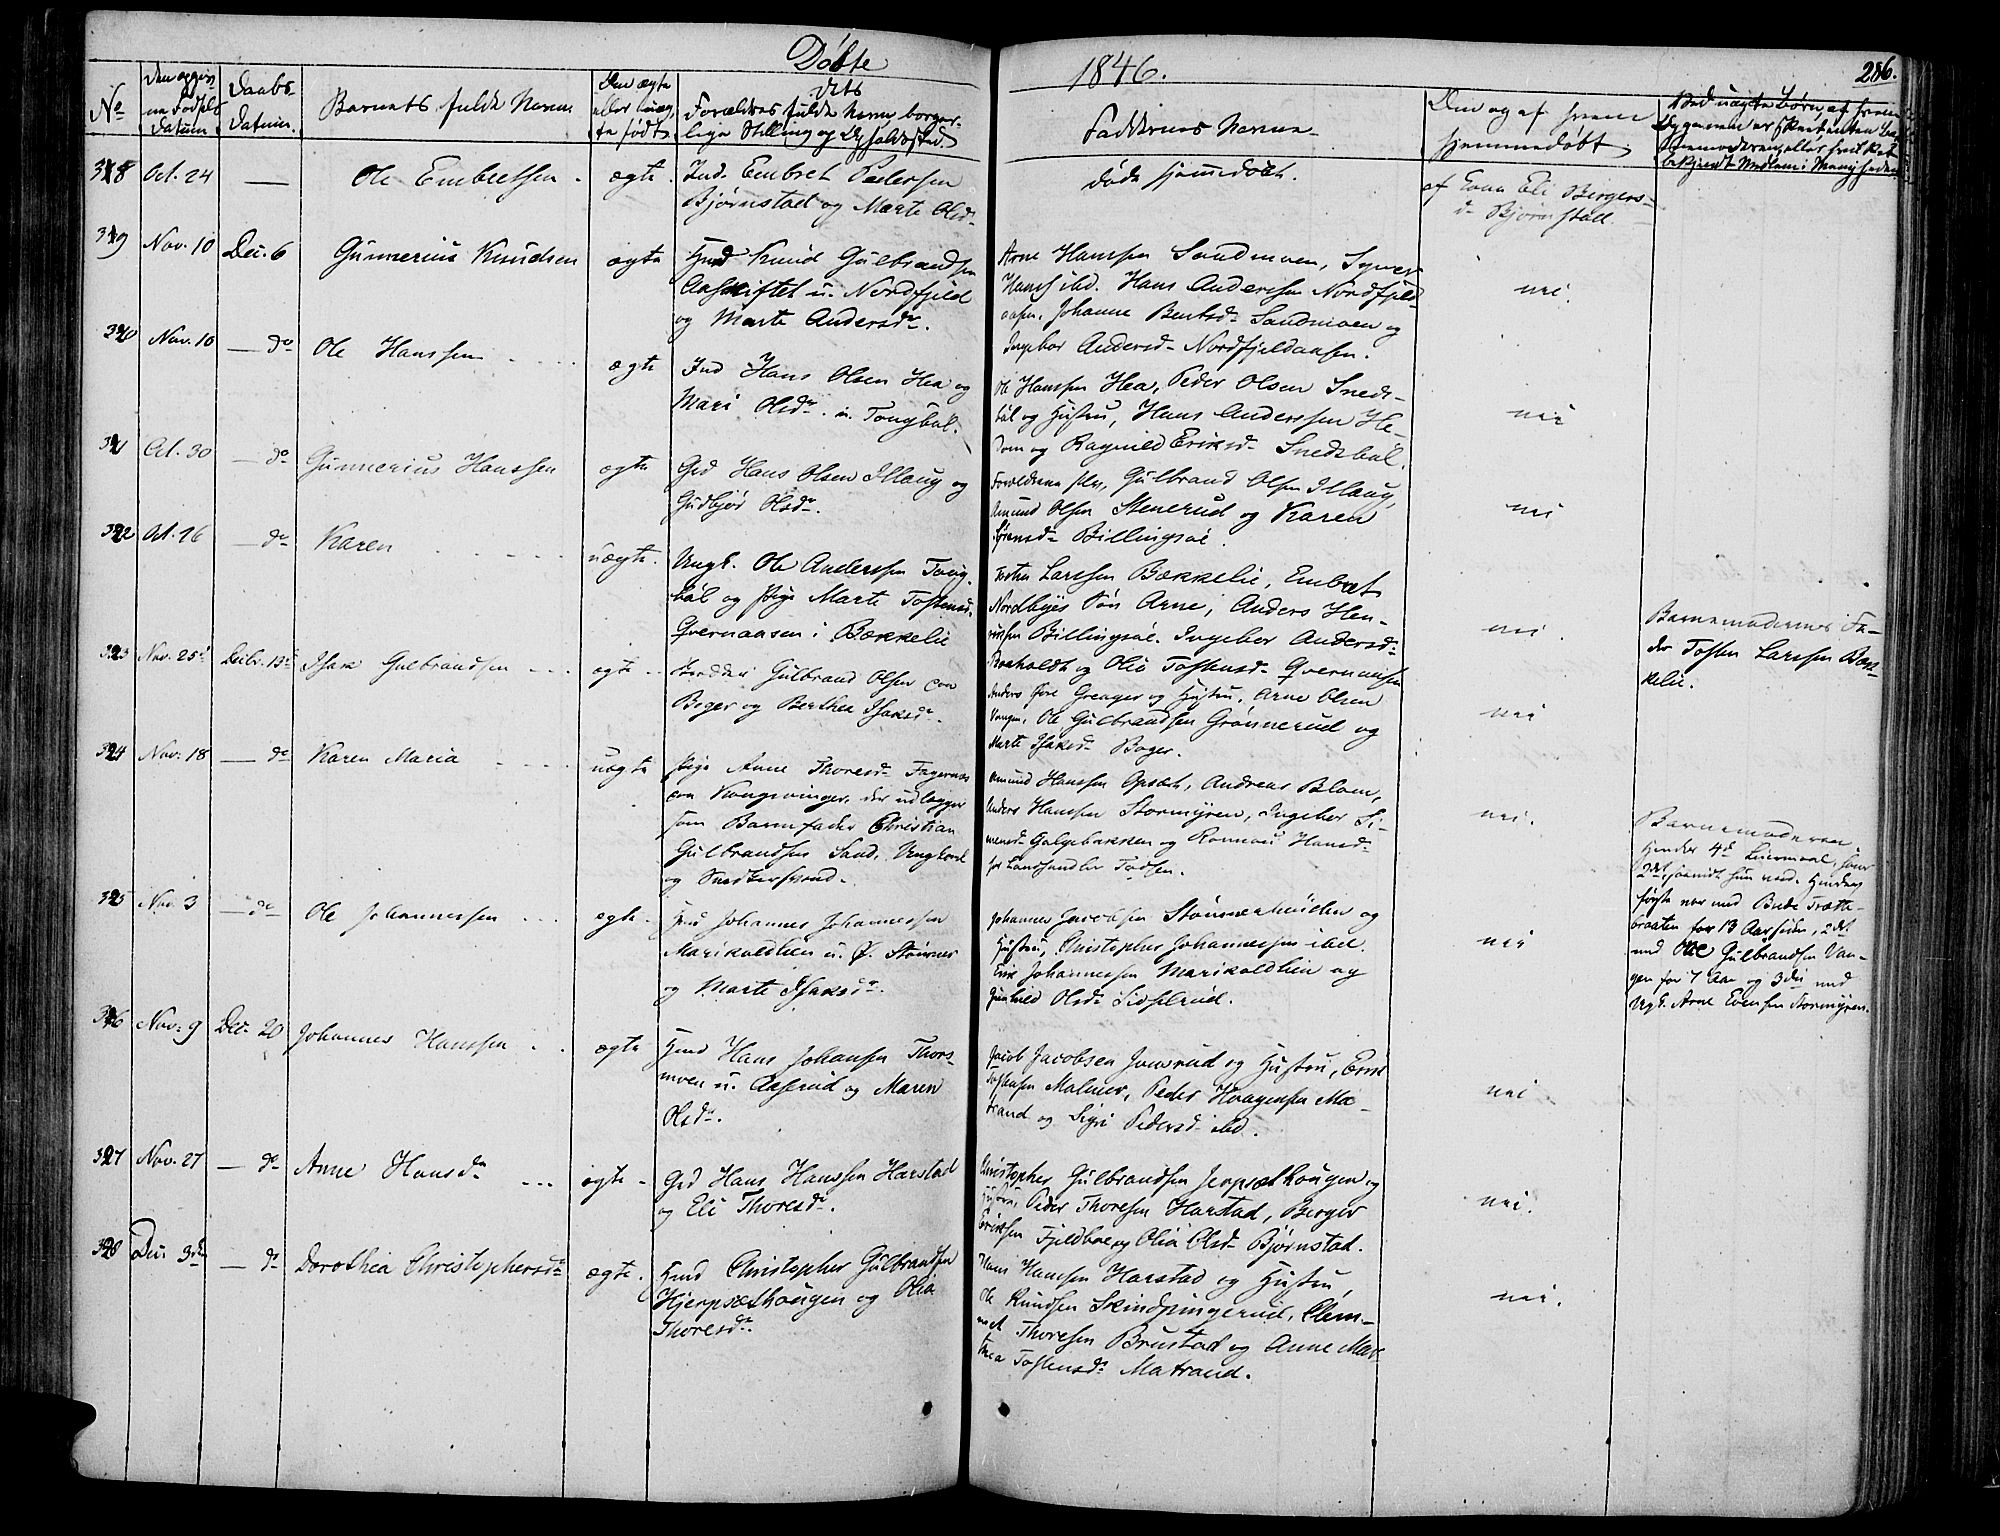 Døbte
1846.
286.
No
Den opgiv
ne Fødsels
Datum
Daabs-
Datum.
Barnets fulde Navn
Om ægte
eller uæg
te født
Dets
Forældres fulde Navn, borger-
lige Stilling og Opholdssted
Faddernes Navne
Om og af hvem
hjemmedøbt
Ved uægte Børn, af hvem
318
Oct. 24
—
Ole Embretsen
ægte
Ind. Embret Pedersen
Bjørnstad og Marte Olsd.
døde hjemmedøbt.
af Kona Eli Bergers-
d. Bjørnstad
319
Nov. 10
Dec. 6
Gunnerius Knudsen
ægte
Hmd Knud Gulbrandsen
Aaskiftet u. Nordfjeld
og Marte Andersd.
Arne Hanssen Sandmoen, Syver
Hans ibd. Hans Anderssen Nordfjeld-
aasen, Johanne Berntsd. Sandmoen og
Ingebor Andersd. Nordfjeldaasen.
nei.
320
Nov. 10
— do
Ole Hanssen
ægte
Ind Hans Olsen Hea og
Mari Olsd. u. Tongbøl.
Ole Hanssen Hea, Peder Olsen Sneds-
bøl og Hustru, Hans Anderssen He-
dom og Ragnild Eriksd. Snedsbøl.
nei
321
Oct. 30
— do
Gunnerius Hanssen
ægte
Grd Hans Olsen Illaug og
Gudbjør Olsd.
Forældrene selv, Gulbrand Olsen Illaug,
Amund Olsen Stenerud og Karen
Sørensd. Billingsøe.
nei
322
Oct. 16
— do
Karen
uægte.
Ungk. Ole Anderssen Tong-
bøl og Pige Marte Tostensd.
Qvernaasen i Bækkelie
Tosten Larssen Bækkelie, Embret
Nordbyes Søn Arne, Anders Hen-
riksen Billingsøe. Ingebor Andersd.
Roaholdt og Olia Tostensd. Qvernaasen
nei.
Barnemoderens Fa-
der Tosten Larssen Bæk-
kelie.
323
Nov. 25
Decbr. 13
Isak Gulbrandsen
ægte
Gulbrand Olsen paa
Boger og Berthea Isaksd.
Anders Øvre Greager og Hustru, Arne Olsen
Vangen, Ole Gulbrandsen Grønnerud og
Marte Isaksd. Boger.
nei
324
Nov. 18
— do
Karen Maria
uægte
Pige Anne Thoresd. Fagernæs
paa Kongsvinger, der udlægger
som Barnefader Christian
Gulbrandsen Sand, Ungkarl
og Snedkersvend.
Amund Hanssen Opsæt, Andreas Blom,
Anders Hanssen Stormyren, Ingebor Si-
mensd. Galgebakken og Rannou Hansd.
hos Landhandler Tødsen.
nei.
Barnemoderen
Hendes 4de Leiermaal, hans
2det, hun med. Hendes
første var med Brede Trætte-
braaten for 13 Aar siden, 2det
med Ole Gulbrandsen Van-
gen for 7 Aar og 3die med
Ungk. Arne Evensen Stormyren.
325
Nov. 3
— do
Ole Johannessen
ægte
Hmd Johannes Johannessen
Marikoldlien u. Ø. Stömner
og Marte Isaksd.
Johannes Jacobsen Stömnerheiden og
Hustru, Christopher Johannessen ibd.
Erik Johannessen Marikoldlien og
Gunild Olsd. Sidselrud.
nei
326
Nov. 9
Dec. 20
Johannes Hanssen
ægte
Hmd Hans Johansen Thors-
moen u. Aaserud og Maren
Olsd.
Jacob Jacobsen Jonsrud og Hustru, Erik
Malmer, Peder Haagensen Ma-
trand og Sigri Pedersd. ibd.
nei
327
Nov. 27
— do
Anne Hansd.
ægte
Grd Hans Hanssen Harstad
og Eli Thoresd.
Christopher Gulbrandsen Jerpsæthougen og
Hustru, Peder Thoresen Harstad, Berger
Eriksen Fjeldbae og Olia Olsd. Bjørnstad.
nei.
328
Dec. 3die
— do
Dorothea Christophersd.
ægte.
Hmd Christopher Gulbrandsen
Hjerpsæthougen og Olia
Thoresd.
Hans Hanssen Harstad og Hustru,
Ole Knudsen Skindpungerud, Clem-
met Thoresen Brustad og Anne Mar-
thea Tostensd. Matrand.
nei.